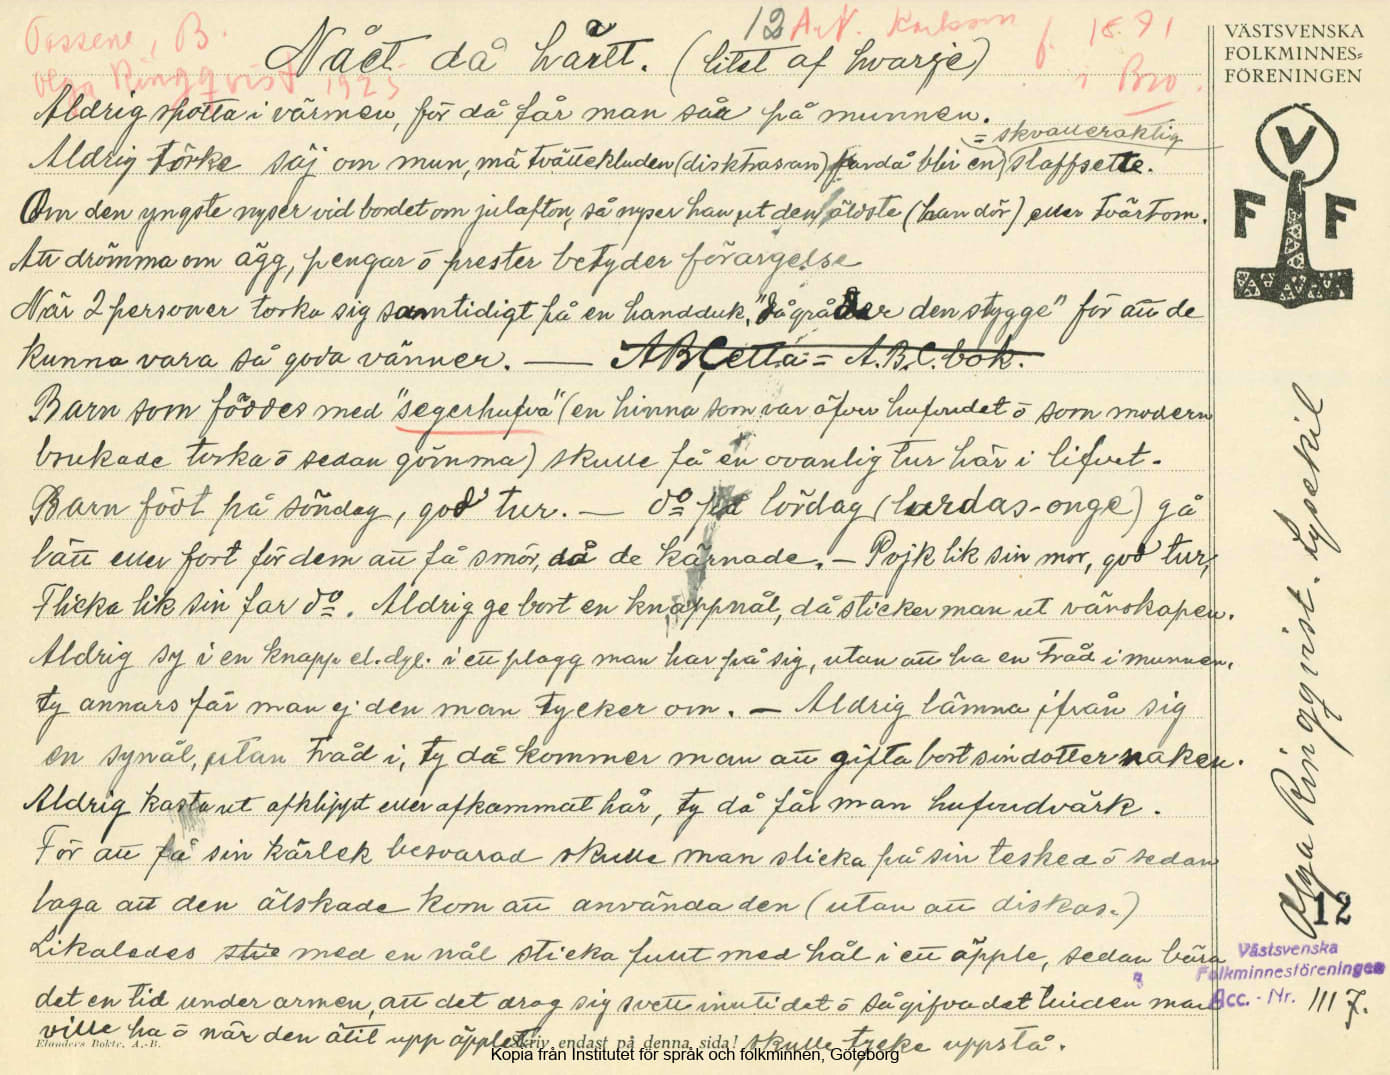 Tossene, B.
Olga Ringqvist 1925
12 A.N. Karlsson f. 1871
i Bro.
Nåct då hårtt. (litet af hvarje)
VÄSTSVENSKA
FOLKMINNES=
FÖRENINGEN
V
F F
Aldrig spotta i värmen, för då får man såa på munnen.
= skvalleraktig
Aldrig törke säj om mun, mä tvättekluden (disktrasan) for då blir en slaffsette.
Om den yngste nyser vid bordet om julafton, så nyser han ut den äldste (han dör) eller tvärtom.
Att drömma om ägg, pengar o prester betyder förargelse
När 2 personer torka sig samtidigt på en handduk, "då gråder den stygge" för att de
kunna vara så goda vänner. — ABCetta = A.B.C. bok.
Barn som föddes med "segerhufva" (en hinna som var öfver hufvudet o som modern
brukade torka o sedan gömma) skulle få en ovanlig tur här i lifvet.
Barn födt på söndag, god tur. — do på lördag (lurdas-onge) gå
lätt eller fort för dem att få smör, då de kärnade. — Pojk lik sin mor, god tur,
Flicka lik sin far do. Aldrig ge bort en knappnål, då sticker man ut vänskapen.
Aldrig sy i en knapp el. dyl. i ett plagg man har på sig, utan att ha en tråd i munnen,
ty annars får man ej den man tycker om. — Aldrig lämna ifrån sig
en synål, utan tråd i, ty då kommer man att gifta bort sin dotter naken.
Aldrig kasta ut afklippt eller afkammat hår, ty då får man hufvudvärk.
För att få sin kärlek besvarad skulle man slicka på sin tesked o sedan
laga att den älskade kom att använda den (utan att diskas.)
Likaledes med en nål sticka fullt med hål i ett äpple, sedan bära
det en tid under armen, att det drog sig svett inuti det o så gifva det till den man
ville ha o när den ätit upp äpplet skulle tycke uppstå.
Elanders Boktr. A.-B.
Skriv endast på denna sida!
Kopia från Institutet för språk och folkminnen, Göteborg
Olga Ringqvist. Lysekil
12
Västsvenska
Folkminnesföreningen
Acc. - Nr. 1117.